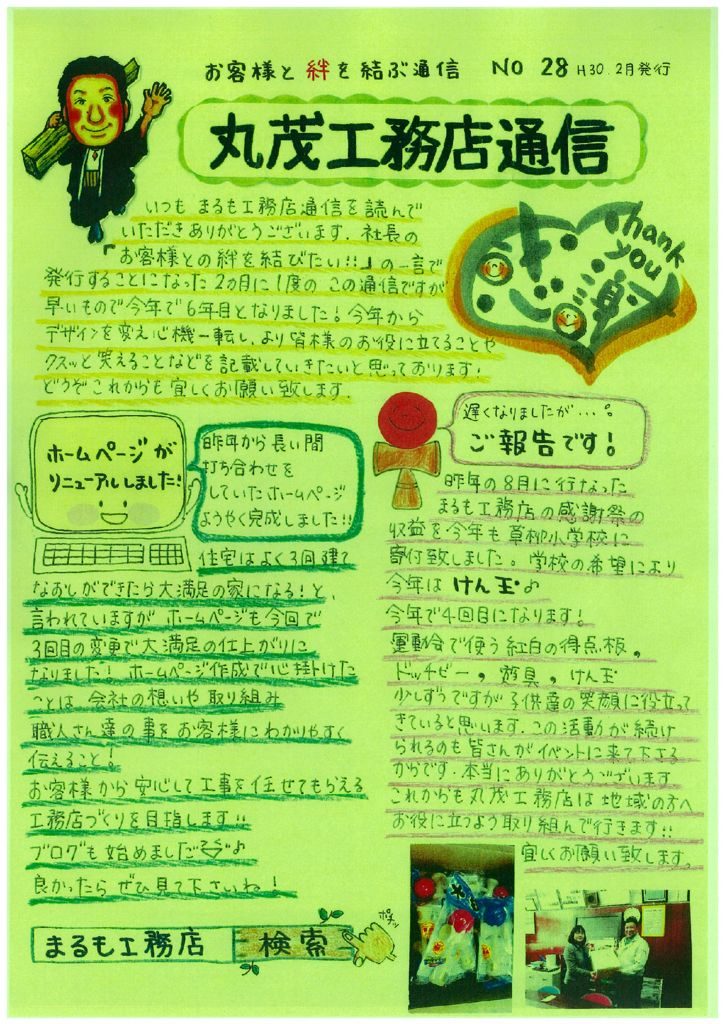 お客様と 絆を結ぶ通信 NO 28 H30.2月発行
丸茂工務店通信
いつも まるも工務店通信を読んで
いただきありがとうございます. 社長の
「お客様との絆を結びたい!!」の一言で
発行することになった2カ月に1度の この通信ですが
早いもので今年で6年目となりました! 今年から
デザインを変え心機一転し、より皆様のお役に立てることや
クスッと笑えることなどを記載していきたいと思っております.
どうぞこれからも宜しくお願い致します.
Thank
you
ホームページが
リニューアルしました!
昨年から長い間
打ち合わせを
していたホームページ
ようやく完成しました!!
住宅はよく3回建て
なおしができたら大満足の家になる!と、
言われていますが ホームページも今回で
3回目の変更で大満足の仕上がりに
なりました! ホームページ作成で心掛けた
ことは 会社の想いや取り組み
職人さん達の事をお客様にわかりやすく
伝えること!
お客様から安心して工事を任せてもらえる
工務店づくりを目指します!!
ブログも始めました♪
良かったら ぜひ見て下さいね!
まるも工務店 検索
ポチッ
遅くなりましたが...。
ご報告です!
昨年の8月に行なった
まるも工務店の感謝祭の
収益を今年も草柳小学校に
寄付致しました。学校の希望により
今年は けん玉♪
今年で4回目になります!
運動会で使う紅白の得点板,
ドッチビー, 遊具, けん玉
少しずつですが子供達の笑顔に役立って
きていると思います. この活動が続け
られるのも皆さんがイベントに来て下さる
からです. 本当にありがとうございます
これからも丸茂工務店は地域の方へ
お役に立つよう取り組んで行きます!!
宜しくお願い致します。